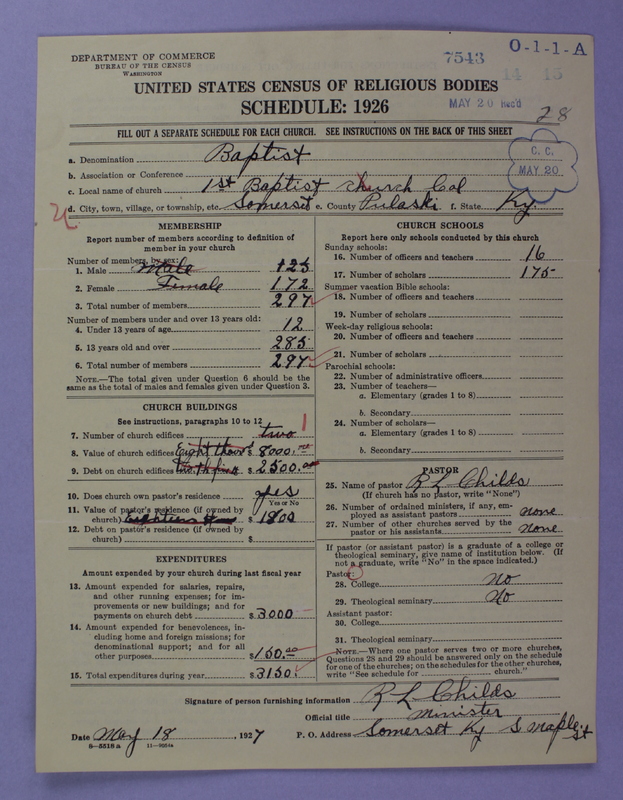 DEPARTMENT OF COMMERCE
BUREAU OF THE CENSUS
WASHINGTON
7543
O-1-1-A
14 15
UNITED STATES CENSUS OF RELIGIOUS BODIES
SCHEDULE: 1926
MAY 20 Rec'd
28
FILL OUT A SEPARATE SCHEDULE FOR EACH CHURCH. SEE INSTRUCTIONS ON THE BACK OF THIS SHEET
C. C.
MAY 20
a. Denomination Baptist
b. Association or Conference
c. Local name of church 1st Baptist church Col
d. City, town, village, or township, etc. Somerset e. County Pulaski f. State Ky
MEMBERSHIP
Report number of members according to definition of
member in your church
Number of members, by sex:
1. Male Male 125
2. Female Female 172
3. Total number of members 297
Number of members under and over 13 years old:
4. Under 13 years of age 12
5. 13 years old and over 285
6. Total number of members 297
NOTE.—The total given under Question 6 should be the
same as the total of males and females given under Question 3.
CHURCH BUILDINGS
See instructions, paragraphs 10 to 12
7. Number of church edifices two 1
8. Value of church edifices Eight thous $ 8000.00
9. Debt on church edifices $ 2500.00
10. Does church own pastor's residence yes
Yes or No
11. Value of pastor's residence (if owned by
church) Eighteen $ 1800
12. Debt on pastor's residence (if owned by
church) $
EXPENDITURES
Amount expended by your church during last fiscal year
13. Amount expended for salaries, repairs,
and other running expenses; for im-
provements or new buildings; and for
payments on church debt $ 3000
14. Amount expended for benevolences, in-
cluding home and foreign missions; for
denominational support; and for all
other purposes $ 150.00
15. Total expenditures during year $ 3150.
CHURCH SCHOOLS
Report here only schools conducted by this church
Sunday schools:
16. Number of officers and teachers 16
17. Number of scholars 175
Summer vacation Bible schools:
18. Number of officers and teachers
19. Number of scholars
Week-day religious schools:
20. Number of officers and teachers
21. Number of scholars
Parochial schools:
22. Number of administrative officers
23. Number of teachers—
a. Elementary (grades 1 to 8)
b. Secondary
24. Number of scholars—
a. Elementary (grades 1 to 8)
b. Secondary
PASTOR
25. Name of pastor R L Childs
(If church has no pastor, write "None")
26. Number of ordained ministers, if any, em-
ployed as assistant pastors none
27. Number of other churches served by the
pastor or his assistants none
If pastor (or assistant pastor) is a graduate of a college or
theological seminary, give name of institution below. (If
not a graduate, write "No" in the space indicated.)
Pastor:
28. College No
29. Theological seminary No
Assistant pastor:
30. College
31. Theological seminary
NOTE.—Where one pastor serves two or more churches,
Questions 28 and 29 should be answered only on the schedule
for one of the churches; on the schedules for the other churches,
write "See schedule for ........ church."
Signature of person furnishing information R L Childs
Official title minister
Date May 18, 1927 P. O. Address Somerset Ky S Maple St
8—5518a 11—9054a